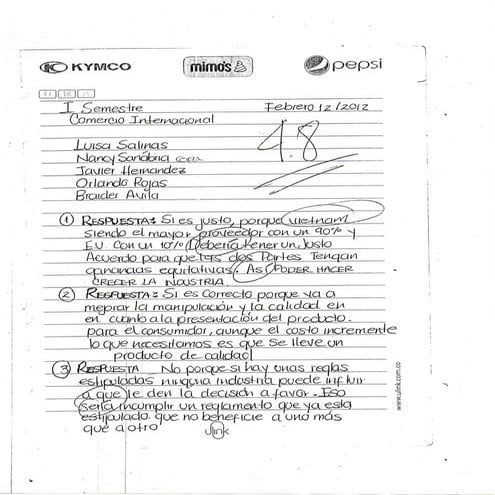 KYMCO mimo's pepsi
D M A
I Semestre Febrero 12/2012
Comercio Internacional
4.8
Luisa Salinas
Nancy Sanabria
Javier Hernandez
Orlando Rojas
Braider Avila
① RESPUESTA: Si es justo, porque Vietnam
siendo el mayor proveedor con un 90% y
E.U. Con un 10% Deberia tener un Justo
Acuerdo para que las dos Partes Tengan
ganancias equitativas. Asi PODER HACER
CRECER LA INDUSTRIA.
② RESPUESTA: Si es correcto porque va a
mejorar la manipulación y la calidad en
en cuanto a la presentación del producto.
para el consumidor, aunque el costo incremente
lo que necesitamos es que se lleve un
producto de calidad
③ RESPUESTA No porque si hay unas reglas
estipuladas ninguna industria puede influir
a que le den la decisión a favor. Eso
seria incumplir un reglamento que ya esta
estipulado que no beneficie a uno más
que a otro
ulink
www.ulink.com.co